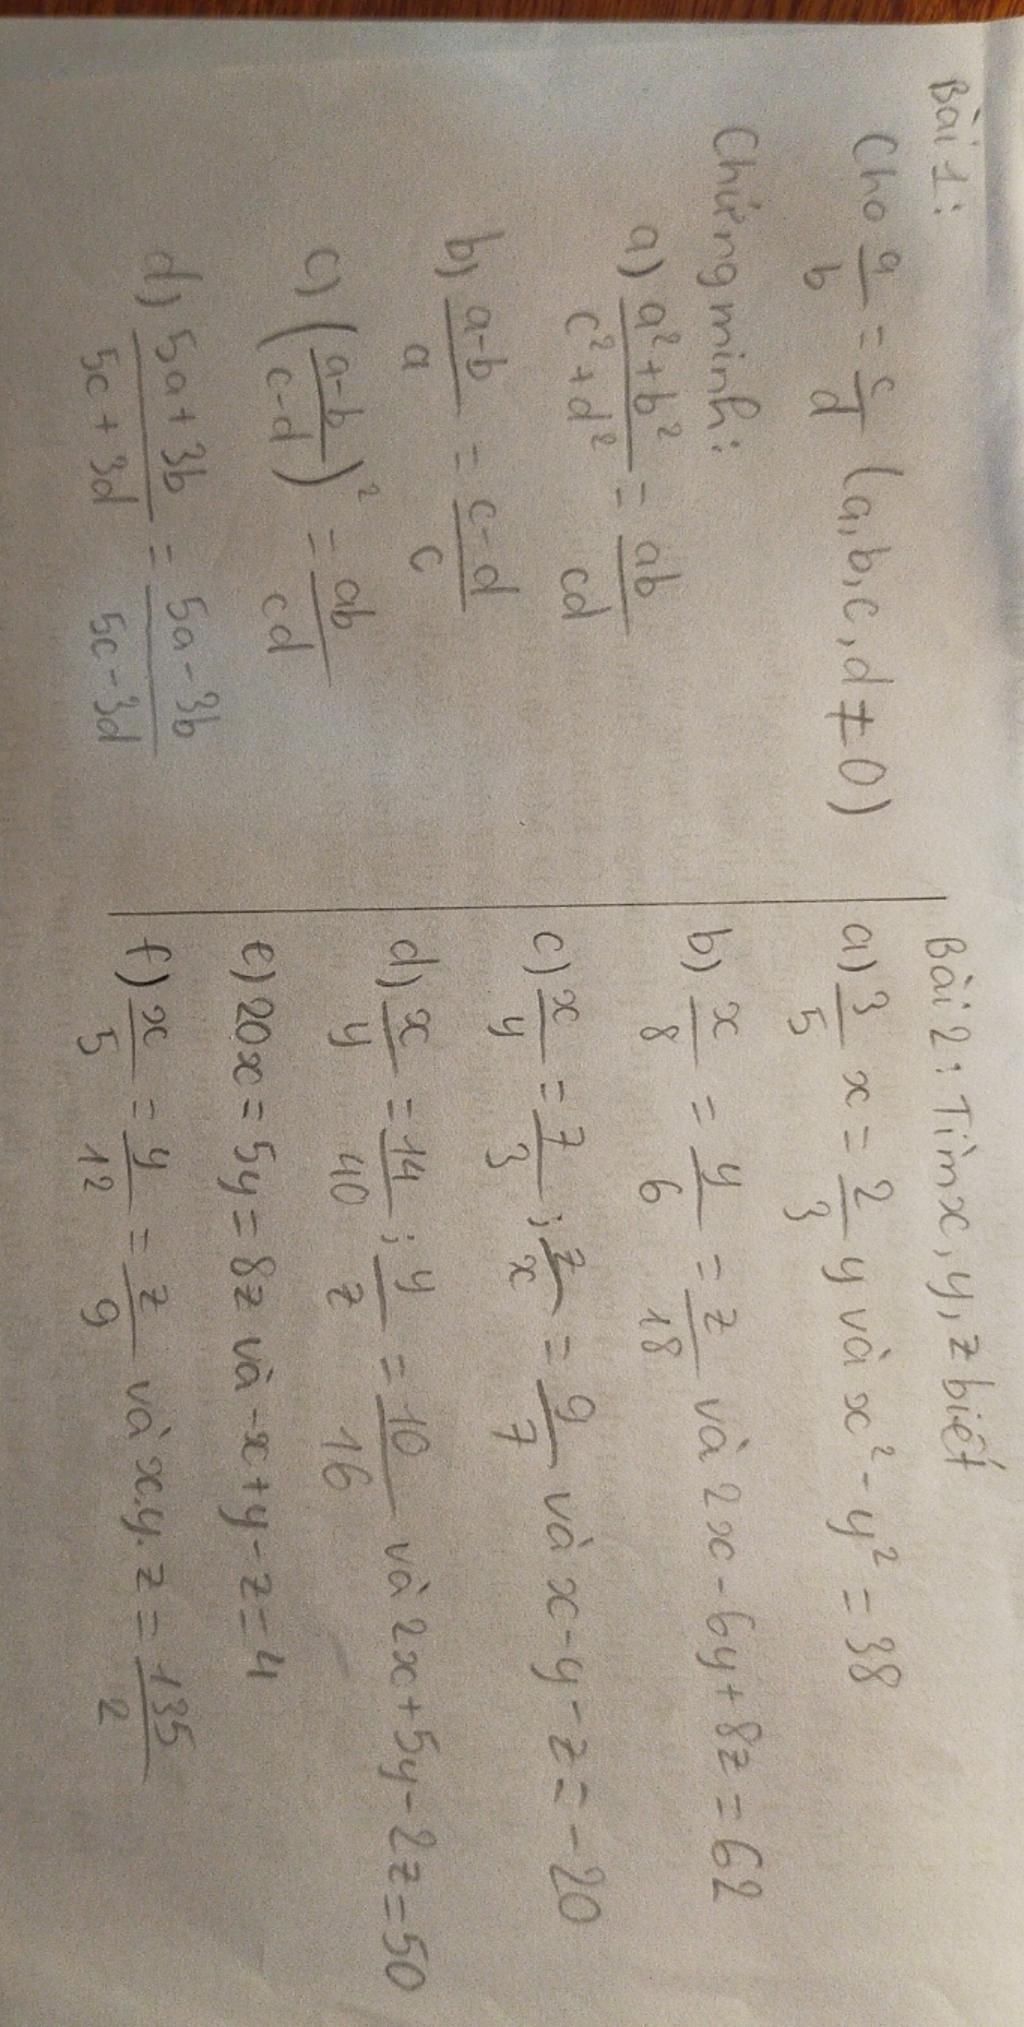 Bài 1:
Cho a/b = c/d (a, b, c, d ≠ 0)
Chứng minh:
a) (a² + b²)/(c² + d²) = ab/cd
b) (a-b)/a = (c-d)/c
c) ((a-b)/(c-d))² = ab/cd
d) (5a + 3b)/(5c + 3d) = (5a - 3b)/(5c - 3d)
Bài 2: Tìm x, y, z biết
a) 3/5 x = 2/3 y và x² - y² = 38
b) x/8 = y/6 = z/18 và 2x - 6y + 8z = 62
c) x/y = 7/3 ; z/x = 9/7 và x - y - z = -20
d) x/y = 14/40 ; y/z = 10/16 và 2x + 5y - 2z = 50
e) 20x = 5y = 8z và -x + y - z = 4
f) x/5 = y/12 = z/9 và x.y.z = 135/2